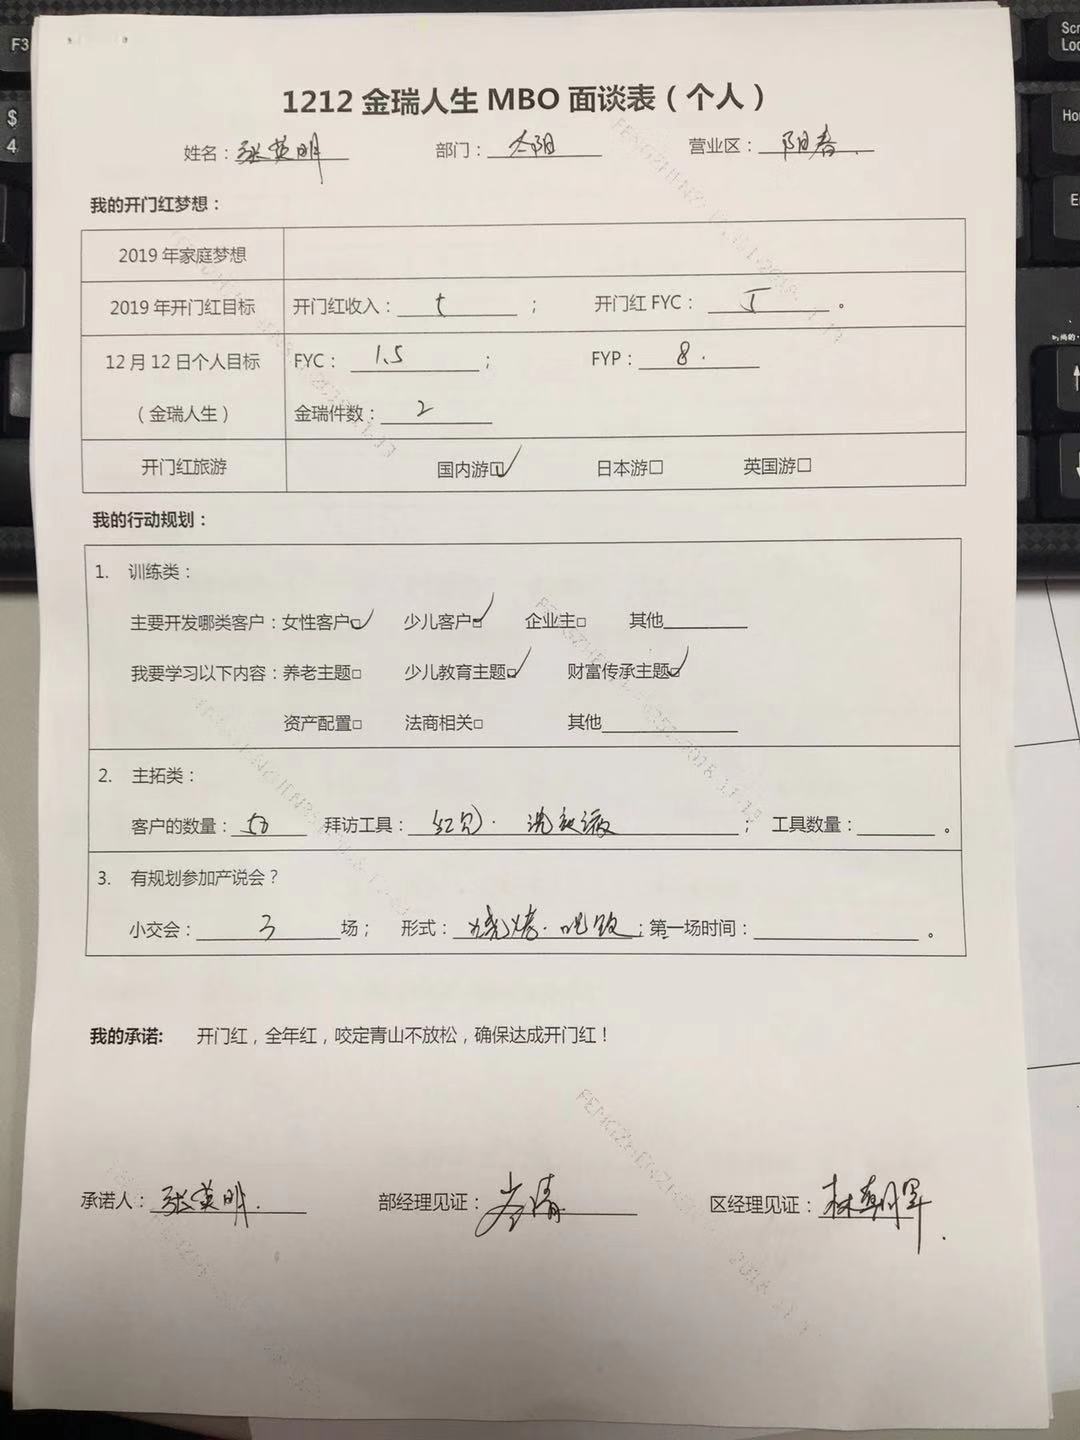 1212 金瑞人生 MBO 面谈表（个人）
姓名：张英明 部门：太阳 营业区：阳春
我的开门红梦想：
2019 年家庭梦想
2019 年开门红目标 开门红收入： ； 开门红 FYC：5 。
12 月 12 日个人目标 FYC：1.5 ； FYP：8.
（金瑞人生） 金瑞件数：2
开门红旅游 国内游☑ 日本游□ 英国游□
我的行动规划：
1. 训练类：
主要开发哪类客户：女性客户☑ 少儿客户☑ 企业主□ 其他
我要学习以下内容：养老主题□ 少儿教育主题☑ 财富传承主题☑
资产配置□ 法商相关□ 其他
2. 主拓类：
客户的数量：50 拜访工具： 洗衣液 ； 工具数量： 。
3. 有规划参加产说会？
小交会：3 场； 形式：烧烤. ；第一场时间： 。
我的承诺： 开门红，全年红，咬定青山不放松，确保达成开门红！
承诺人：张英明. 部经理见证：岑清 区经理见证：林朝